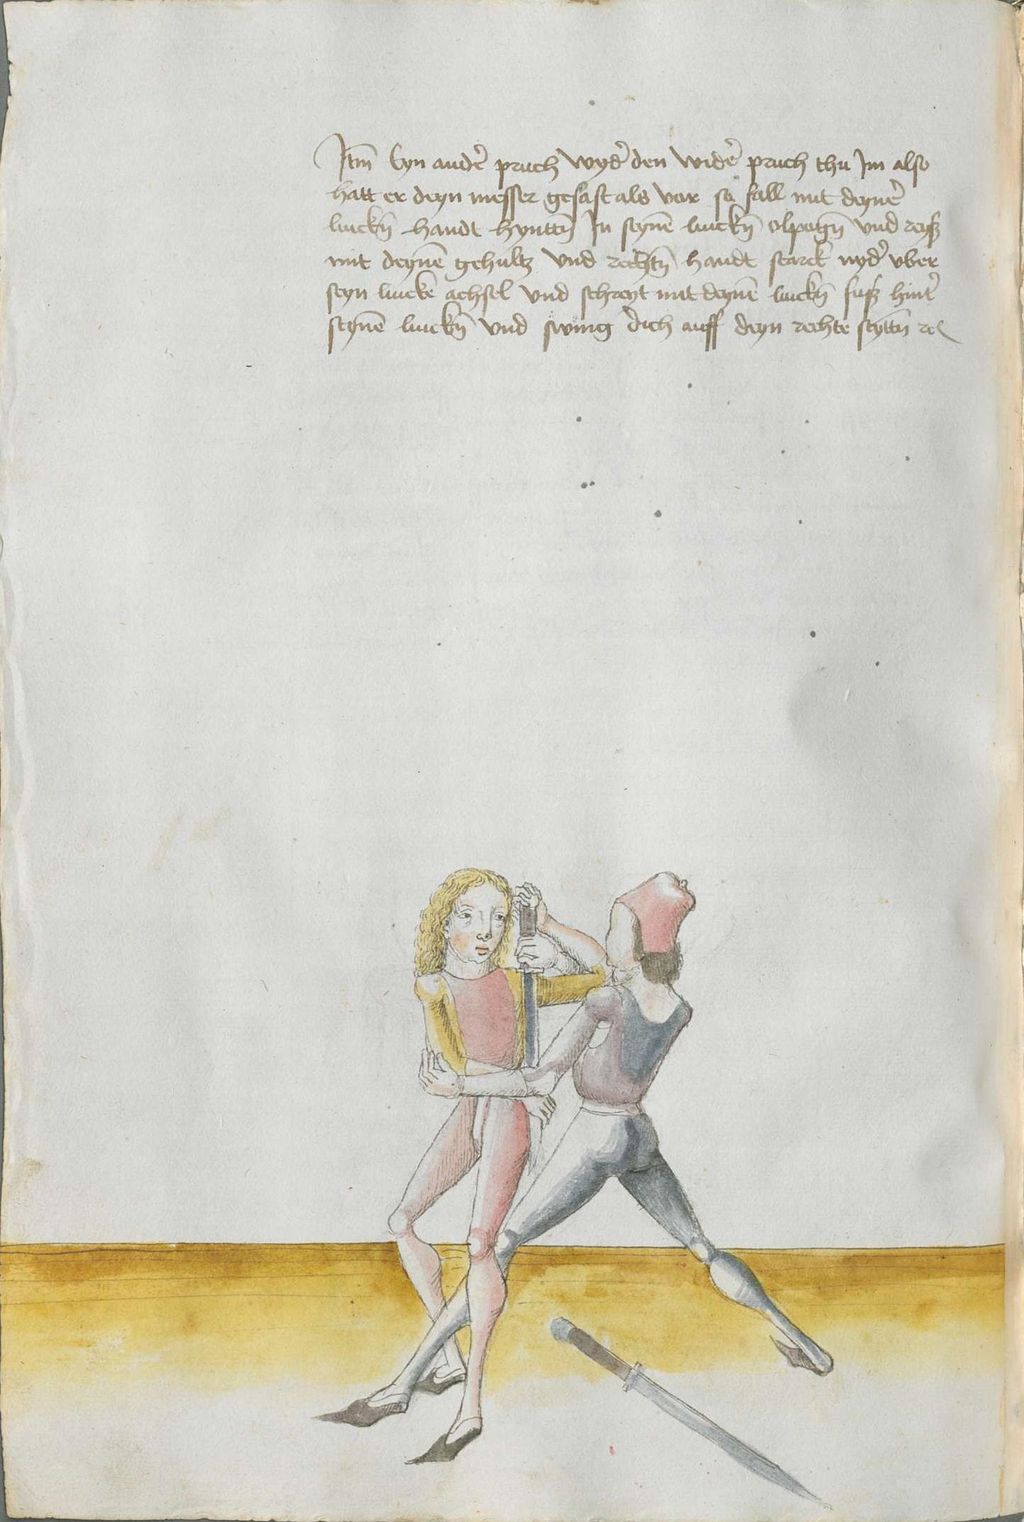 Itm̄ Eyn andr̄ pruch wyd' den widr̄ pruch thu Im also
hatt er deyn messer gefast als vor so fall mit deynr̄
linckn̄ handt hyntn̄ In seynē linckn̄ elpogn̄ vnd reyß
mit deynē gehultz vnd rechtn̄ handt starck nyd' vber
seyn lincke achsel vnd schreyt mit deynē linckn̄ fuß hintr̄
seynē linckn̄ vnd swing dich auff deyn rechte seyttn̄ rc